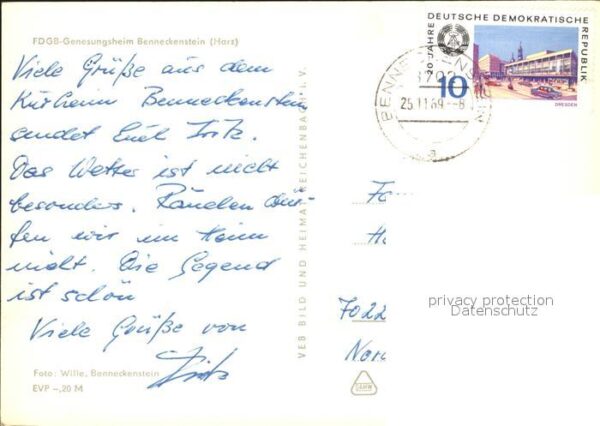 FDGB-Genesungsheim Benneckenstein (Harz)
Viele Grüße aus dem
Kurheim Benneckenstein
sendet Euch Fritz.
Das Wetter ist nicht
besonders. Rauchen dür-
fen wir im Heim
nicht. Die Gegend
ist schön
Viele Grüße von
Fritz
Foto: Wille, Benneckenstein
EVP –,20 M
VEB BILD UND HEIMAT REICHENBACH i. V.
20 JAHRE DEUTSCHE DEMOKRATISCHE REPUBLIK
10
DRESDEN
BENNECKENSTEIN
25.11.69.-8
a
Fa
Ha
7022
Nor
privacy protection
Datenschutz